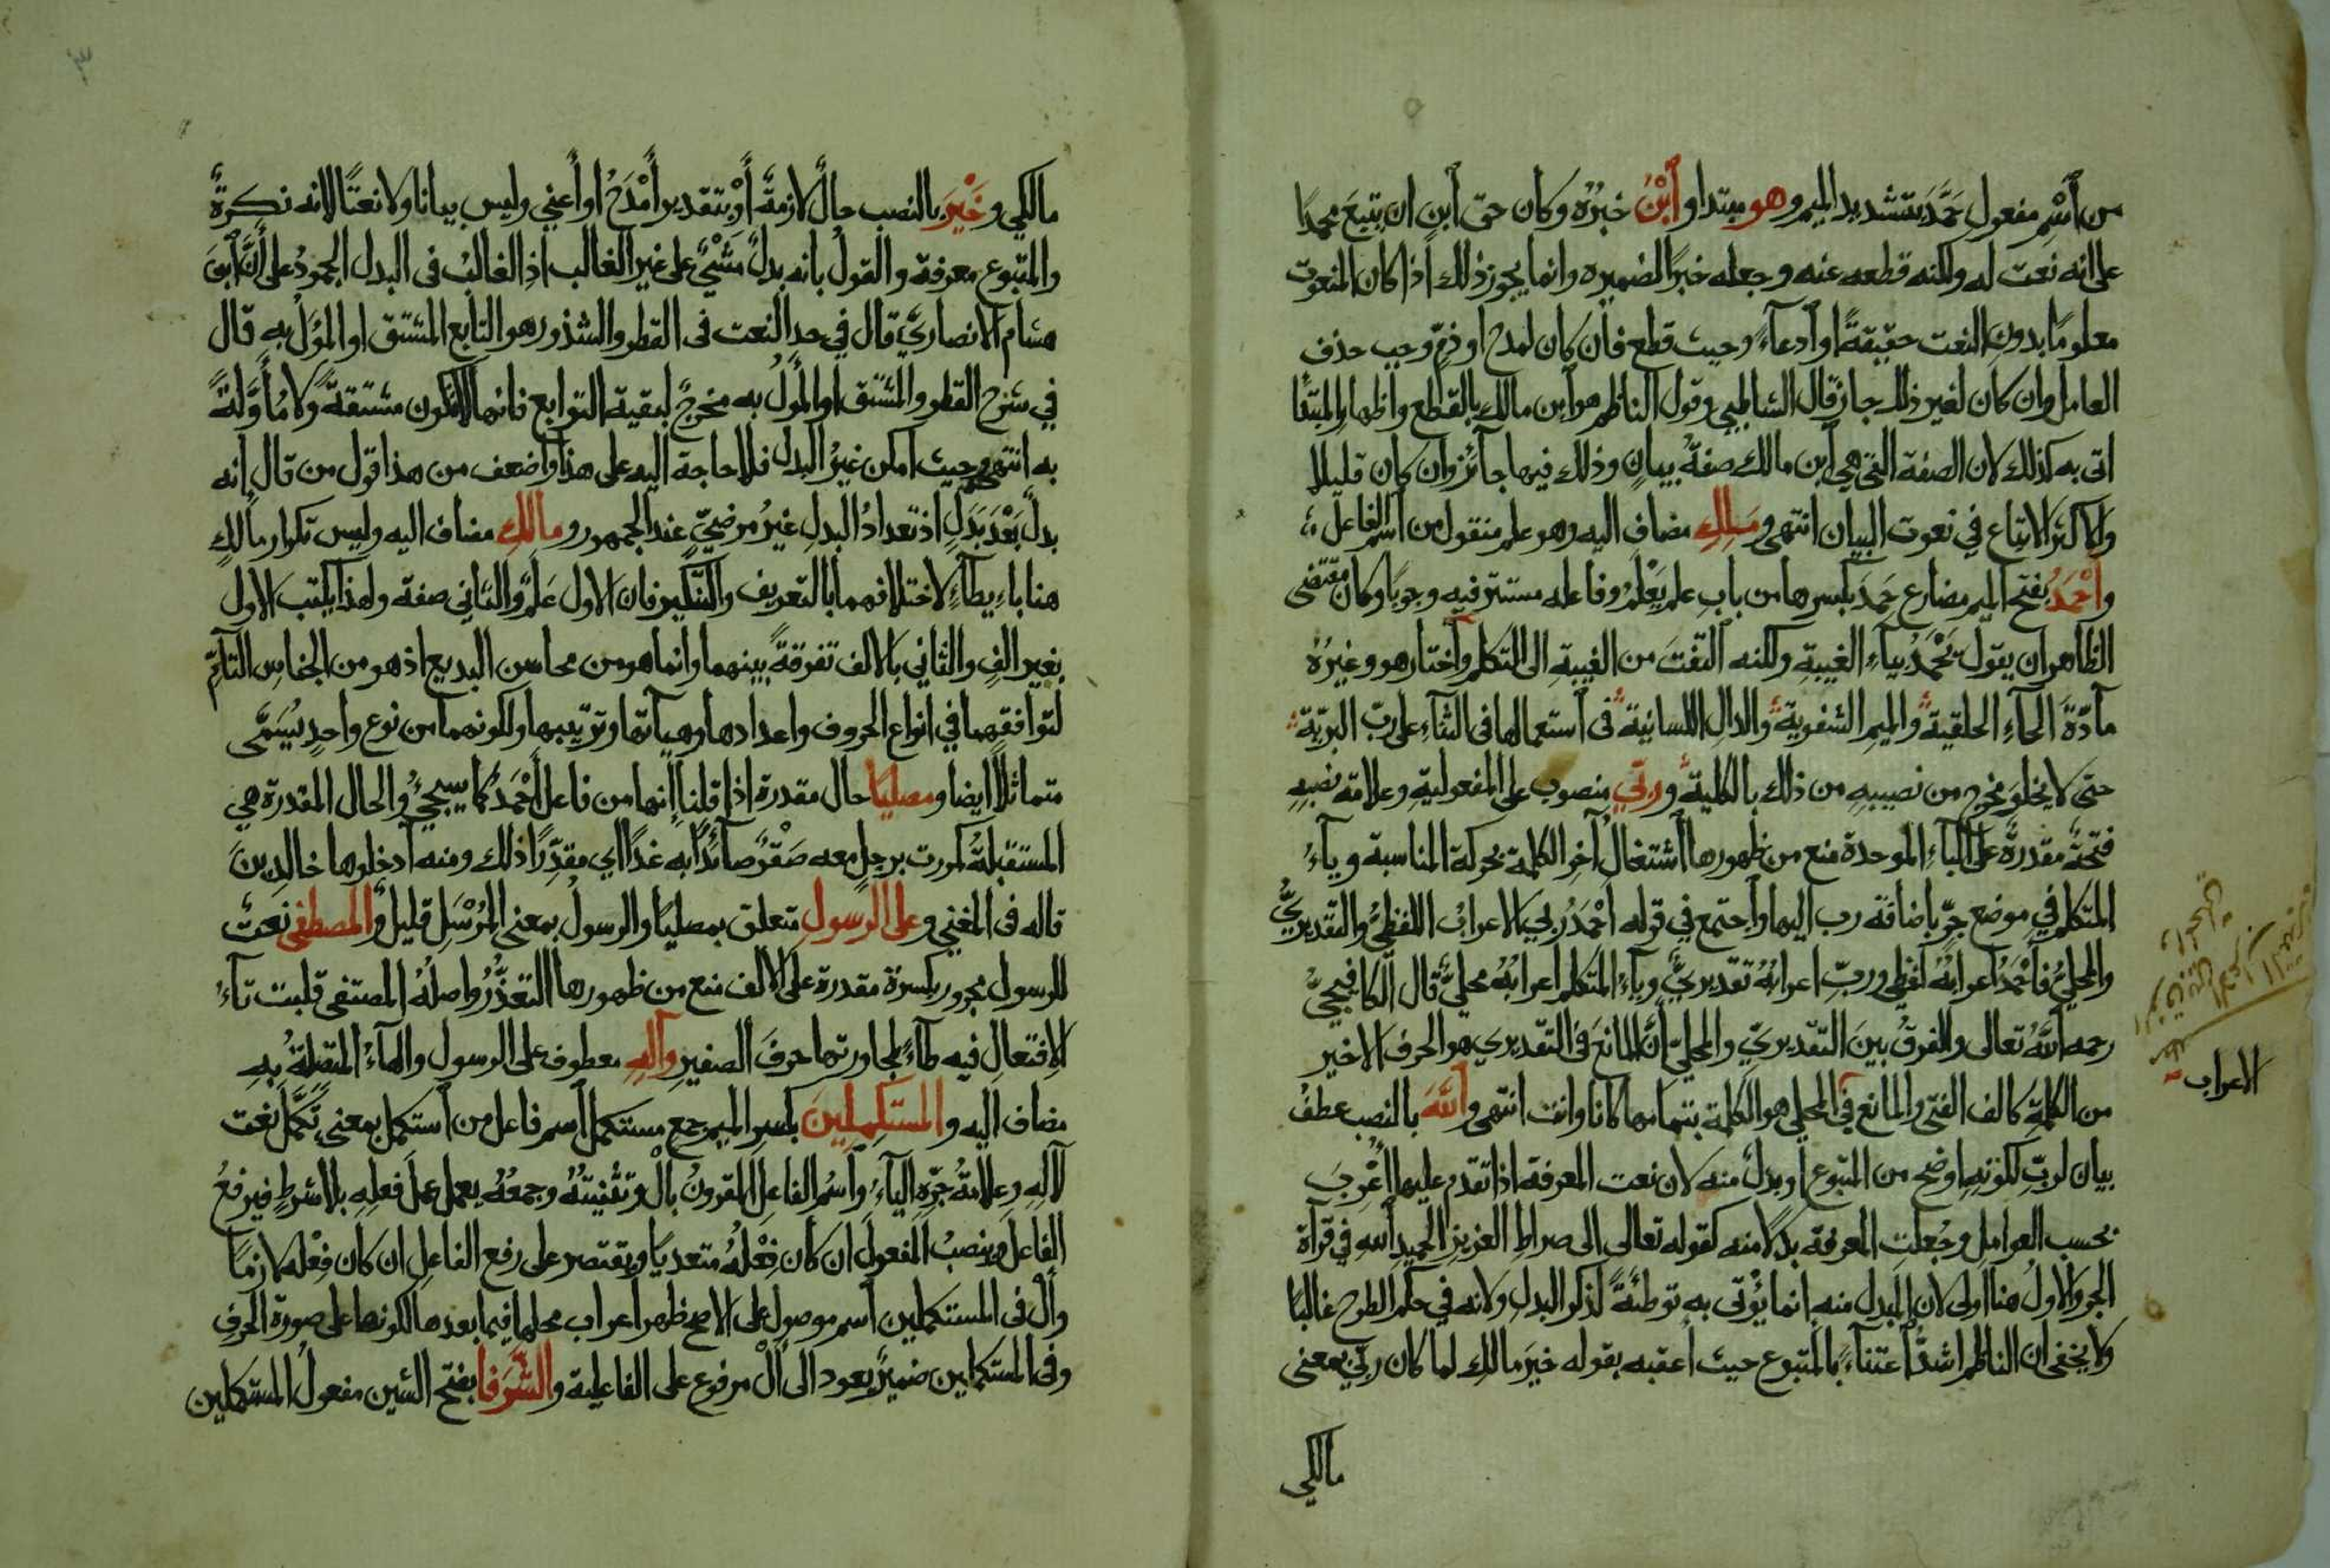 من اَسْم مفعول حَمَّدَ بتشديد الميم وهو مبتدا واَبْنُ خبرُه وكان حق اَبن ان يتبعَ محمدًا
على انه نعت له ولكنه قطعه عنه وجعله خبرًا لضميره وانما يجوز ذلك اذا كان المنعوت
معلومًا بدون النعت حقيقةً او اَدعاءً وحيث قطع فان كان لمدح او ذمّ وجب حذف
العامل وان كان لغير ذلك جاز قال الشاطبي وقول الناظم هو اَبن مالك بالقطع واظهار المبتدا
اتى به كذلك لان الصفة التي هي اَبن مالك صفةُ بيانٍ وذلك فيها جائز وان كان قليلا
والاكثر الاتباع في نعوت البيان انتهى ومالكِ مضاف اليه وهو علم منقول من اَسْم الفاعل
واَحْمَدُ بفتح الميم مضارع حَمِدَ بكسرها من باب علم يَعْلَم وفاعله مستتر فيه وجوبًا وكان مقتضى
الظاهر ان يقول يَحْمَدُ بياءِ الغيبةِ ولكنه اَلتفتَ من الغيبةِ الى التكلم واَختار هو وغيرُه
مادّةَ الحاءِ الحلقية والميمِ الشفوية والدالِ اللسانية فى اَستعمالها فى الثناءِ على ربّ البريّة
حتى لا يخلو مخرج من نصيبهِ من ذلك بالكلية وربّي منصوب على المفعوليةِ وعلامة نصبهِ
فتحةٌ مقدرة على الباءِ الموحدة منع من ظهورها اَشتغالُ آخرِ الكلمة بحركة المناسبة وياءُ
المتكلم في موضع جرّ باضافة رب اليها واَجتمع في قوله اَحْمَدُ ربي الاعرابُ اللفظيُّ والتقديريُّ
والمحليُّ فاَحْمَدُ اعرابُهُ لفظي وربّ اعرابُه تقديريٌّ وياءُ المتكلم اعرابُهُ محليٌّ قال الكافيجيُّ
رحمه اَللهُ تعالى والفرقُ بينَ التقديريّ والمحليّ اَنَّ المانعَ فى التقديري هو الحرف الاخير
من الكلمةِ كالف الفتى والمانع في المحلي هو الكلمة بتمامها كانا وانت انتهى واَللهَ بالنصب عطفُ
بيان لربّ لكونهِ اوضح من المتبوع او بدلٌ منه لان نعت المعرفة اذا تقدم عليها اُعْرِبَ
بحسب العوامل وجُعلت المعرفة بدلا منه كقوله تعالى الى صراطِ العزيزِ الحميدِ اَللهِ في قراة
الجر والاولُ هنا اولى لان المبدل منه انما يُؤتى به توطئةً لذكر البدلِ ولانه في حكم الطرح غالبًا
ولا يخفى ان الناظم اشدُّ اَعتناءً بالمتبوع حيث اعقبه بقوله خيرَ مالكِ لما كان ربّي بمعنى
مالكي
الاعراب
٣
مالكي وخَيْرَ بالنصب حال لازمة اَوْ بتقدير اَمْدَحُ او اَعني وليس بيانا ولا نعتًا لانه نكرةٌ
والمتبوع معرفة والقول بانه بدلٌ مَشْيٌ على غير الغالب اذِ الغالبُ فى البدل الجمودُ على اَنَّ اَبنَ
هشام الانصاريَّ قال في حد النعت فى القطر والشذور هو التابع المشتق او المؤل به قال
في شرح القطر والمشتق او المؤل به مخرجٌ لبقية التوابع فانها لا تكون مشتقةً ولا مُاَوَّلةً
به انتهى وحيث امكن غيرُ البدل فلا حاجة اليه على هذا واضعف من هذا قول من قال انه
بدلٌ بَعْدَ بَدَلٍ اذ تعدادُ البدلِ غيرُ مرضيّ عند الجمهور ومالكِ مضاف اليه وليس تكرار مالكِ
هنا باءِيطاءٍ لاختلافهما بالتعريف والتنكير فان الاول عَلَمٌ والثاني صفة ولهذا يكتب الاول
بغير الفٍ والثاني بالالف تفرقةً بينهما وانما هو من محاسن البديع اذ هو من الجناسِ التآمّ
لتوافقهما في انواع الحروف واعدادها وهيآتها وترتيبها ولكونهما من نوع واحد يُسَمَّى
متماثلا ايضا ومصليًا حال مقدرة اذا قلنا اِنها من فاعل اَحْمَدُ كما سيجيءُ والحال المقدرة هي
المستقبلةُ كمررت برجلٍ معه صَقْرٌ صآئدًا به غدًا اي مقدِّرًا ذلك ومنه اَدخلوها خالدِينَ
قاله فى المغني وعلى الرسولِ متعلق بمصليًا والرسولُ بمعنى المُرْسَلِ قليلٌ والمصطفى نعت
للرسول مجرور بكسرة مقدرة على الالف منع من ظهورها التعذّرُ واصلُهُ المصتفى قلبت تاءُ
الافتعال فيه طاءً لمجاورتها حرفَ الصفيرِ واَلهِ معطوف على الرسولِ والهاءُ المتصلةُ بِهِ
مضاف اليه والمستكملينَ بكسرِ الميم جمع مستكمل اَسم فاعل من اَستكمل بمعنى تَكَمَّلَ نعت
لآلِهِ وعلامةُ جرّهِ الياءُ واَسْمُ الفاعلِ المقرونُ بال وتثنيتُهُ وجمعُهُ يعمل عملَ فعلهِ بلا شرطٍ فيرفعُ
الفاعلَ وينصبُ المفعولَ ان كان فِعْلُهُ متعديًا ويقتصر على رفع الفاعلِ ان كان فِعْله لازمًا
واَلْ فى المستكملين اَسم موصول على الاصح ظهر اعراب محلها فيما بعدها لكونها على صورة الحرفِ
وفى المستكملين ضميرٌ يعود الى اَلْ مرفوع على الفاعلية والشَّرَفا بفتح الشين مفعولُ المستكملين